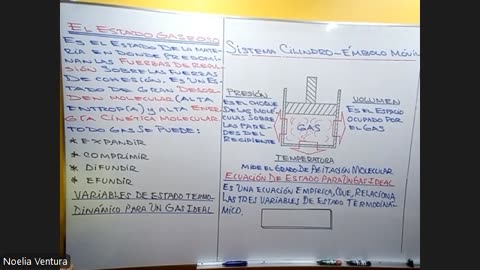 EL ESTADO GASEOSO
ES EL ESTADO DE LA MATE-
RIA EN DONDE PREDOMI-
NAN LAS FUERZAS DE REPUL-
SIÓN SOBRE LAS FUERZAS
DE COHESIÓN, ES UN ES-
TADO DE GRAN DESOR-
DEN MOLECULAR (ALTA
ENTROPÍA) Y ALTA ENER-
GÍA CINÉTICA MOLECULAR.
TODO GAS SE PUEDE:
* EXPANDIR
* COMPRIMIR
* DIFUNDIR
* EFUNDIR
VARIABLES DE ESTADO TERMO-
DINÁMICO PARA UN GAS IDEAL
SISTEMA CILINDRO-ÉMBOLO MÓVIL
PRESIÓN
ES EL CHOQUE
DE LAS MOLÉ-
CULAS SOBRE
LAS PARE-
DES DEL
RECIPIENTE
GAS
VOLUMEN
ES EL ESPACIO
OCUPADO POR
EL GAS
TEMPERATURA
MIDE EL GRADO DE AGITACIÓN MOLECULAR
ECUACIÓN DE ESTADO PARA UN GAS IDEAL
ES UNA ECUACIÓN EMPÍRICA, QUE, RELACIONA
LAS TRES VARIABLES DE ESTADO TERMODINÁ-
MICO.
Noelia Ventura